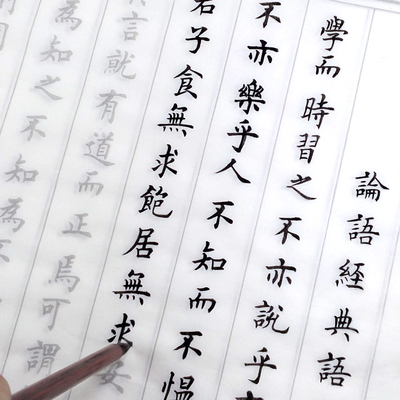 論語經典語
學而時習之不亦說乎
不亦樂乎人不知而不慍
君子食無求飽居無求安
言就有道而正焉可謂
為知之不知為不